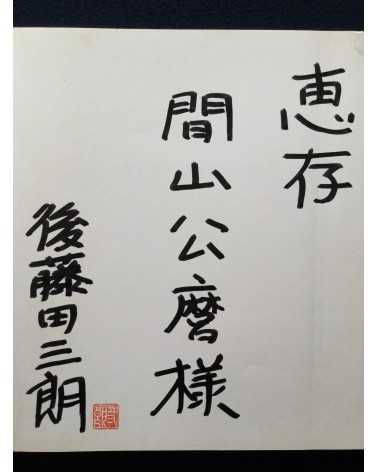 恵存
間山公麿様
後藤田三朗